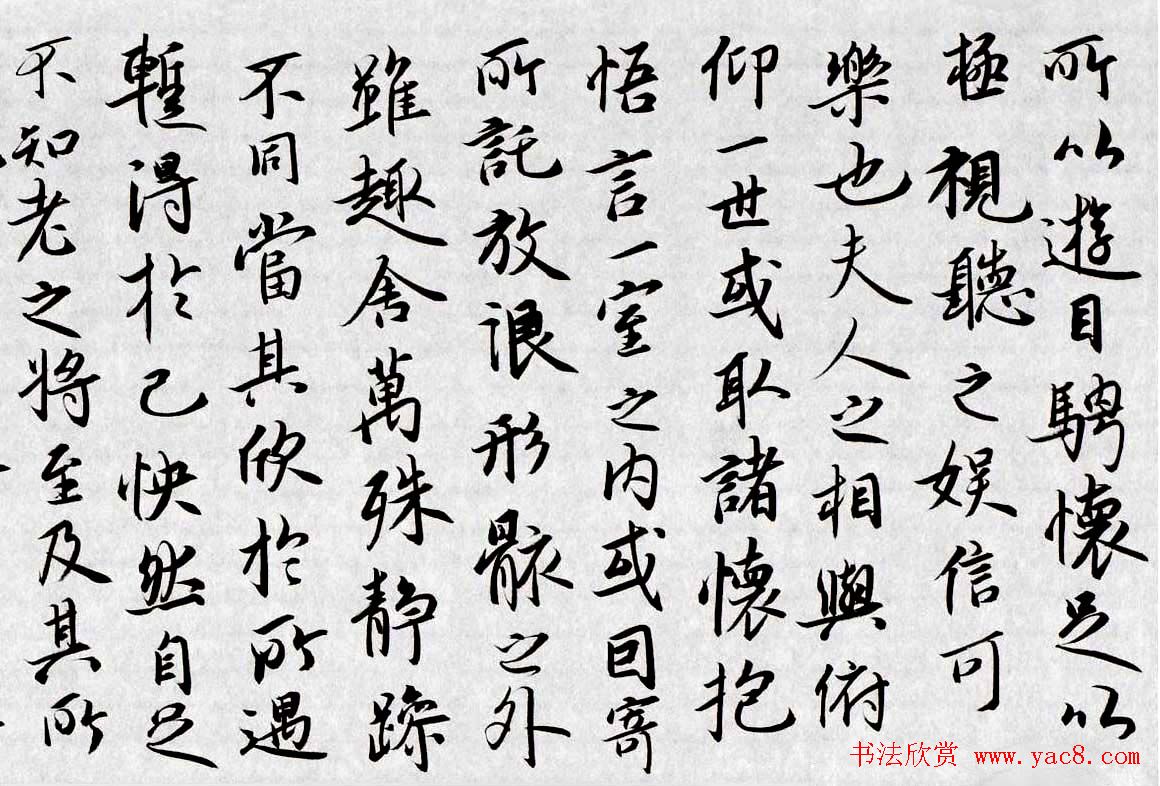 所以遊目騁懷足以
極視聽之娱信可
樂也夫人之相與俯
仰一世或取諸懷抱
悟言一室之内或因寄
所託放浪形骸之外
雖趣舍萬殊静躁
不同當其欣於所遇
暫得於己怏然自足
不知老之將至及其所
书法欣赏 www.yac8.com